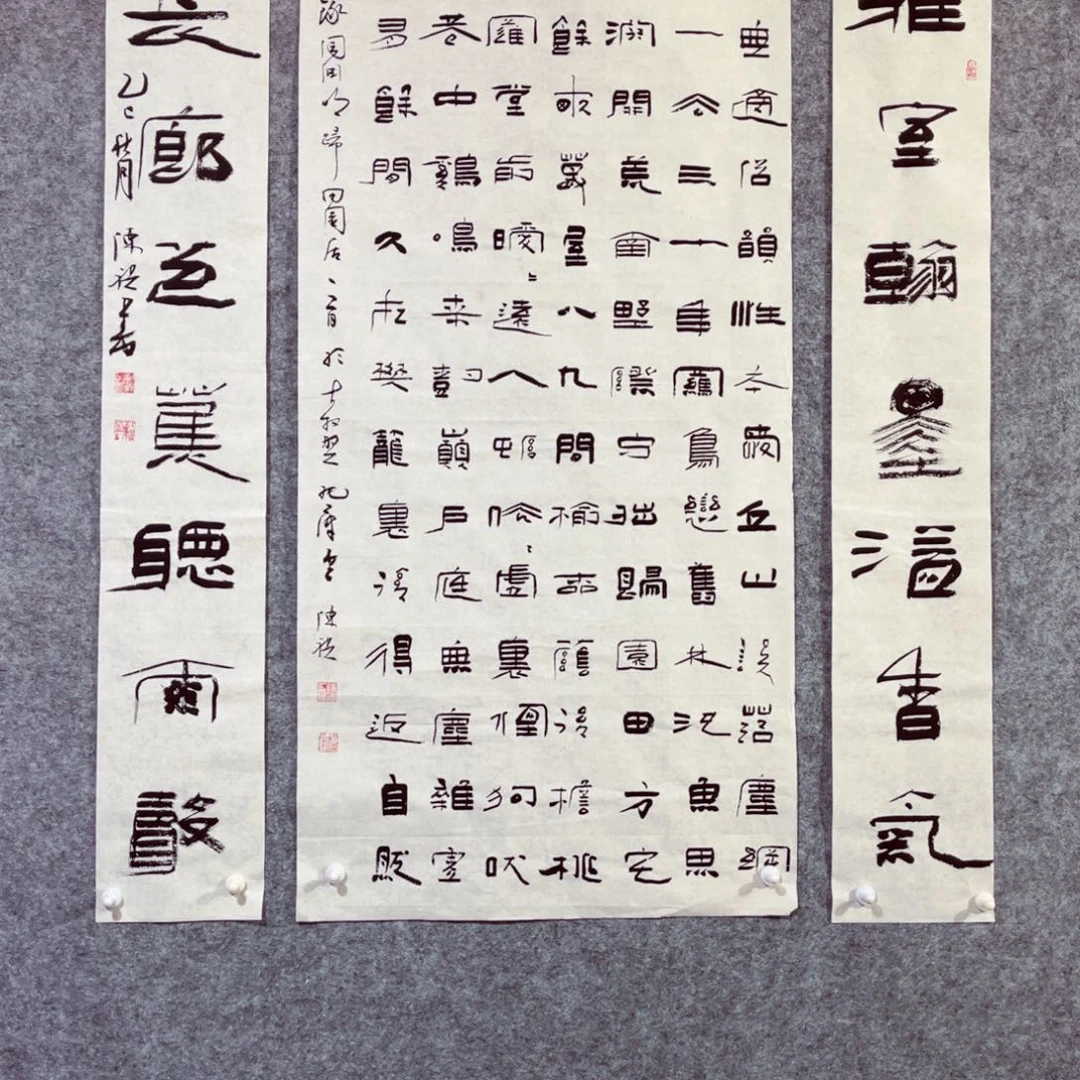 雅室翰墨溢香氣
無適俗韻性本愛丘山誤落塵網
一去三十年羈鳥戀舊林池魚思
淵開荒南野際守拙歸園田方宅
餘畝草屋八九間榆柳蔭後檐桃
羅堂前曖〻遠人村依〻墟裏煙狗吠
巷中雞鳴桑樹顛戶庭無塵雜虛
有餘閒久在樊籠裏復得返自然
明歸田園居一首於 陳
長廊芭蕉聽雨聲
乙巳秋月 陳 書